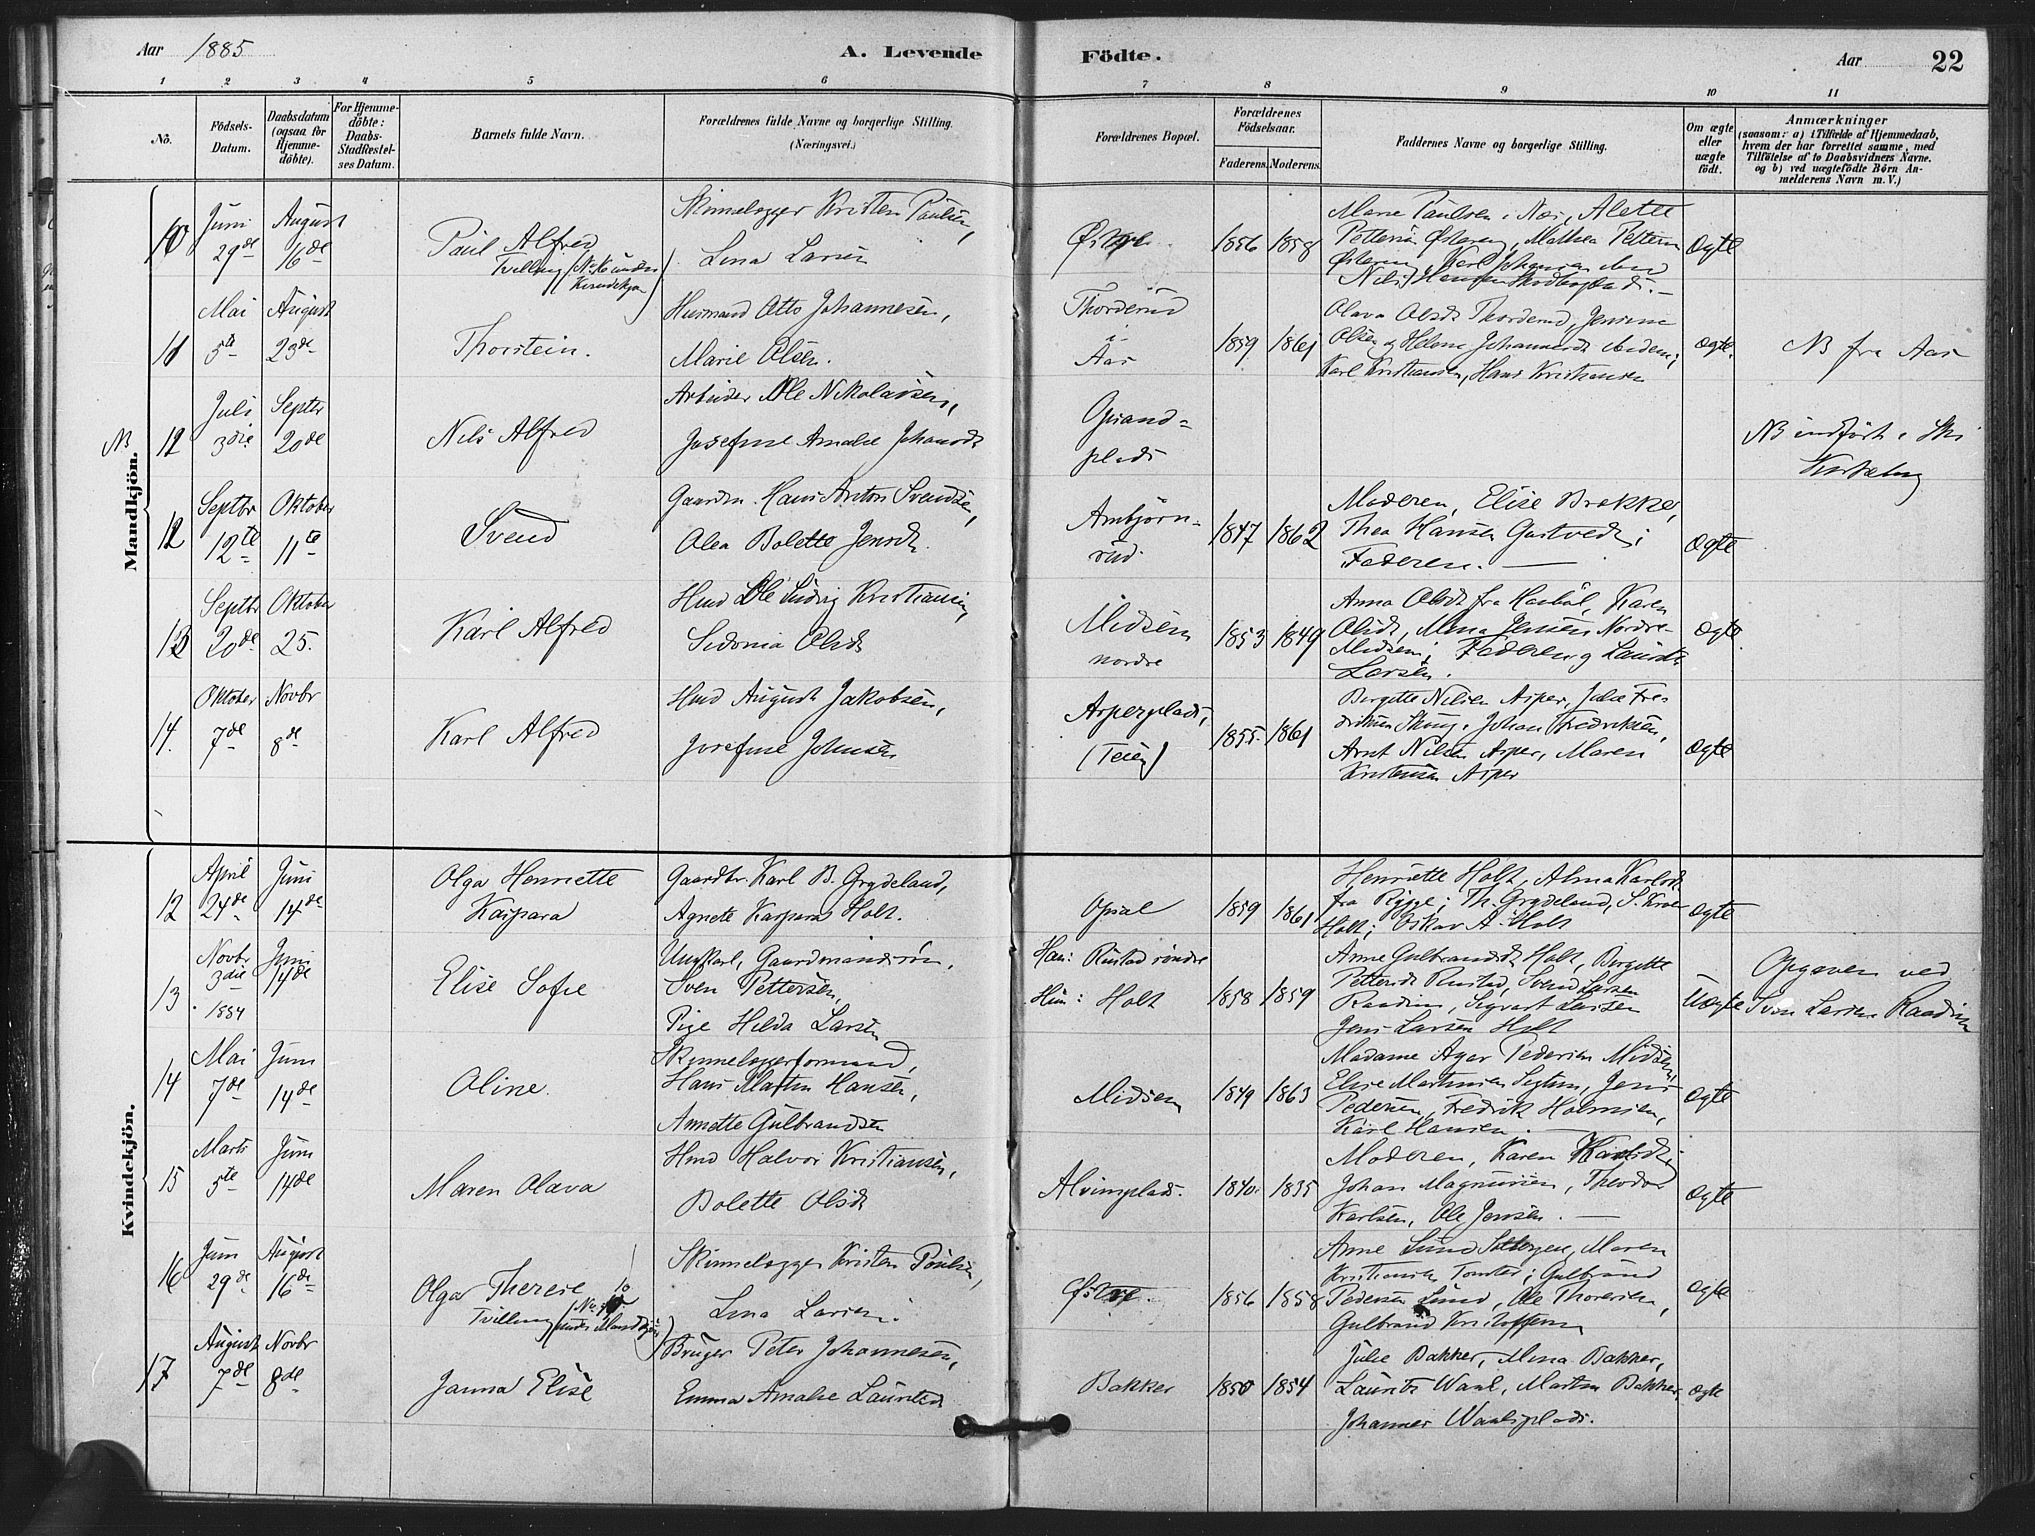 Aar 1885
A. Levende
Födte.
Aar
22
1 2 3 4 5 6 7 8 9 10 11
No.
Födsels-
Datum.
Daabsdatum
(ogsaa for
Hjemme-
döbte).
For Hjemme-
döbte:
Daabs-
Stadfæstel-
ses Datum.
Barnets fulde Navn.
Forældrenes fulde Navne og borgerlige Stilling.
(Næringsvei.)
Forældrenes Bopæl.
Forældrenes
Födselsaar.
Faderens.
Moderens.
Faddernes Navne og borgerlige Stilling.
Om ægte
eller
uægte
födt.
Anmærkninger
(saasom: a) i Tilfælde af Hjemmedaab,
hvem der har forrettet samme, med
Tilföielse af to Daabsvidners Navne.
og b) ved uægtefödte Börn An-
melderens Navn m. V.)
Mandkjön.
10
Juni
29de
August
16de
Paul Alfred
Tvilling
Skinnelægger Kristen Paulsen,
Lina Larsen
1856 1858
Marie Paulsen i Næs, Alette
Pettersen Østereng, Mathea Pettersen
Ægte
11
Mai
5te
August
23de
Thorstein.
Husmand Otto Johannesen,
Marie Olsen.
Thorderud
i
Aas
1859 1861
Olava Olsdt Thorderud, Jensine
Olsen og Helene Johannesdt ibidem;
Karl Kristiansen, Hans Kristiansen
Ægte.
NB fra Aas
NB
12
Juli
3die
Septbr
20de
Nils Alfred
Arbeider Ole Nikolaisen,
Josefine Amalie Johansdt
Grand=
plads
NB indfört i Ski
12
Septbr
12te
Oktober
11te
Svend
Gaardm. Hans Anton Svendsen,
Olea Bolette Jensdt.
Arnbjørn-
rud
1847 1862
Moderen, Elise Brekke,
Thea Hansen Gastvedt;
Faderen.
Ægte
13
Septbr
20de
Oktober
25.
Karl Alfred
Hmd Ole Ludvig Kristiansen
Sidonia Olsdt
Midsem
nordre
1853 1849
Anna Olsdt fra Haaböl, Karen
Olsdt, Mina Jensen Nordre-
Midsem; Faderen og Laurits
Larsen.
Ægte.
14.
Oktober
7de
Novbr
8de
Karl Alfred
Hmd August Jakobsen,
Josefine Johnsen
Asperplads,
(Teien)
1855. 1861
Birgitte Nilsen Asper, Julie Fre-
driksen Skung, Johan Fredriksen,
Arnt Nilsen Asper, Maren
Kristensen Asper
Ægte
Kvindekjön.
12
April
24de
Juni
14de
Olga Henriette
Kaspara
Gaardbr. Karl B. Grydeland,
Agnete Kaspara Holt.
Opsal
1859 1861
Henriette Holt, Alma Karlsdt
fra Rygge; Th. Grydeland, S.
Holt; Oskar A. Holt
Ægte
13
Novbr
3die
1884
Juni
14de
Elise Sofie
Ungkarl, Gaardmandssøn,
Sven Pettersen,
Pige Hilda Larsen
Han: Rustad söndre
Hun: Holt
1858 1859
Anne Gulbrandsdt Holt, Birgitte
Pettersdt Rustad, Svend Larsen
Raadim, Sigvart Larsen
Jens Larsen Holt
Uægte
Opgaven ved
Sven Larsen Raadim
14
Mai
7de
Juni
14de
Oline.
Skinnelæggerformand,
Hans Martin Hansen,
Annette Gulbrandsen
Midsem
1849 1863
Madame Agar Pedersen Midsem,
Elise Martinsen Sigtun, Jens
Pedersen, Fredrik Holmsen,
Karl Hansen.
Ægte
15
Marts
5te
Juni
14de
Maren Olava
Hmd Halvor Kristiansen,
Bolette Olsdt
Alvimplads.
1840. 1835
Moderen, Karen Karlsdt;
Johan Magnussen, Theodor
Karlsen, Ole Jensen.
Ægte
16
Juni
29de
August
16de
Olga Therese
Tvilling (No. 10
under Mandkjön)
Skinnelægger Kristen Paulsen,
Lina Larsen.
1856 1858
Anne Lund Solbergen, Maren
Kristiansen Tomter; Gulbrand
Pedersen Lund, Ole Thoresen,
Gulbrand Kristoffersen
Ægte
17
August
7de
Novbr
8de
Janna Elise
Bruger Peter Johannesen,
Emma Amalie Lauritsd.
Bakker
1850 1854
Julie Bakker, Mina Bakker,
Laurits Waal, Martin Bakker,
Johannes Waalsplads.
Ægte